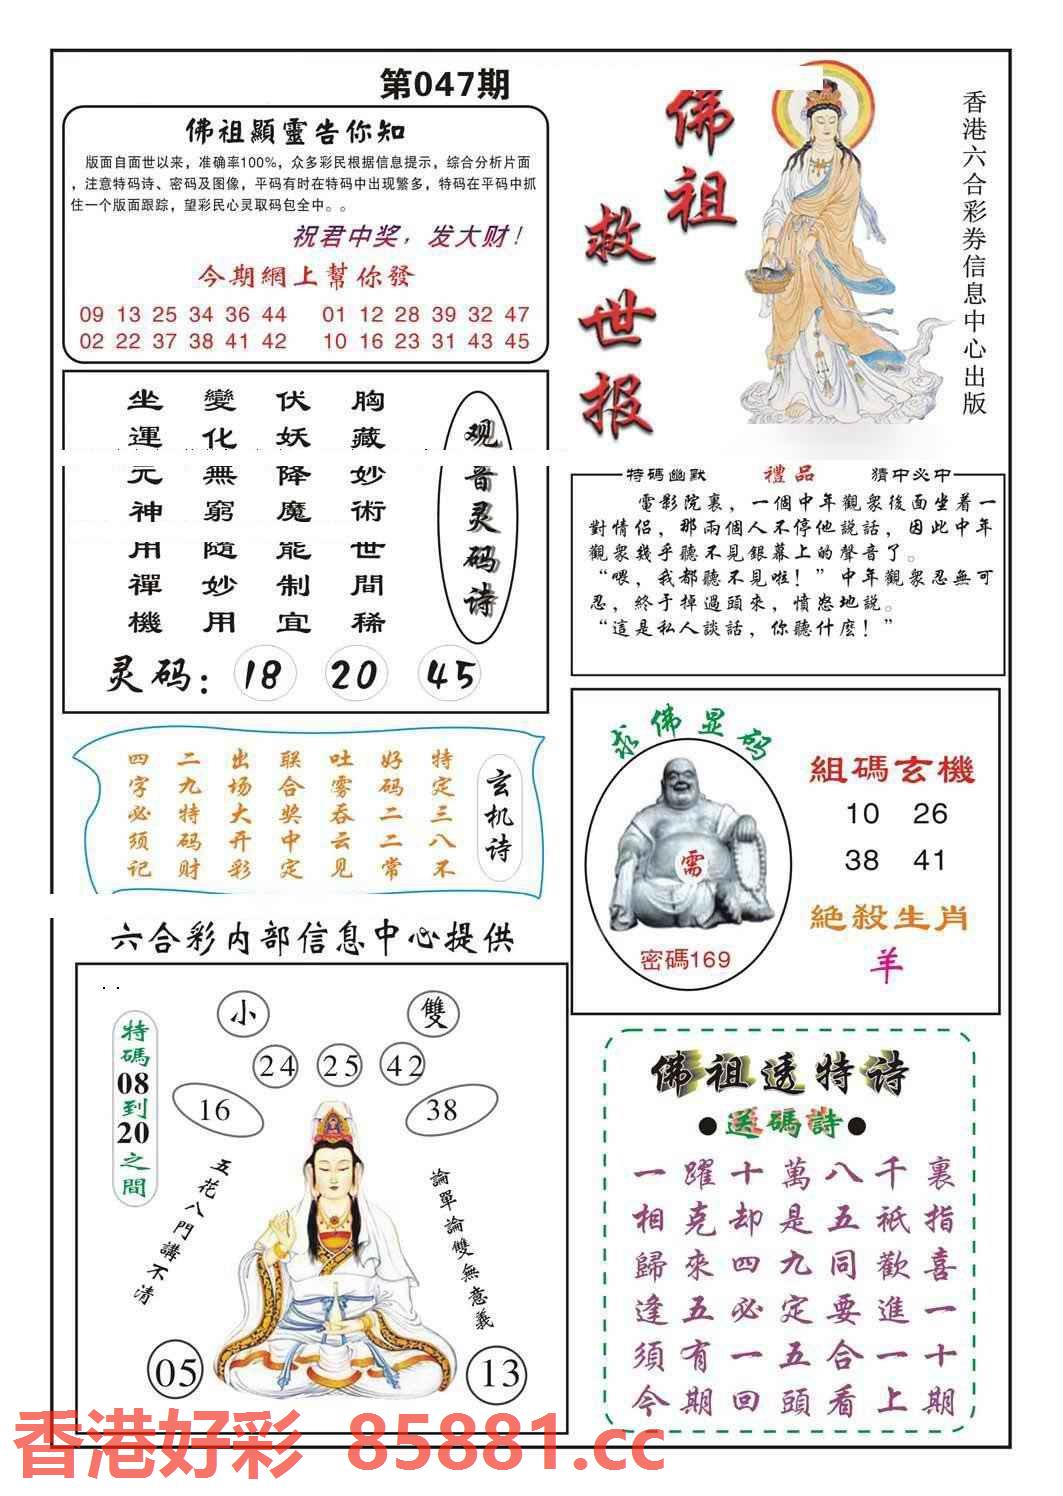 第047期
佛祖顯靈告你知
版面自面世以来，准确率100%，众多彩民根据信息提示，综合分析片面
，注意特码诗、密码及图像，平码有时在特码中出现繁多，特码在平码中抓
住一个版面跟踪，望彩民心灵取码包全中。。
祝君中奖，发大财！
今期網上幫你發
09 13 25 34 36 44 01 12 28 39 32 47
02 22 37 38 41 42 10 16 23 31 43 45
佛祖
救世报
香港六合彩券信息中心出版
观音灵码诗
胸藏妙術世間稀
伏妖降魔能制宜
變化無窮隨妙用
坐運元神用禪機
灵码：18 20 45
特碼幽默 禮品 猜中必中
電影院裏，一個中年觀衆後面坐着一
對情侣，那兩個人不停他説話，因此中年
觀衆幾乎聽不見銀幕上的聲音了。
“喂，我都聽不見啦！”中年觀衆忍無可
忍，終于掉過頭來，憤怒地説。
“這是私人談話，你聽什麼！”
玄机诗
特定三八不
好码二二常
吐雾吞云见
联合奖中定
出场大开彩
二九特码财
四字必须记
求佛显码
需
密碼169
組碼玄機
10 26
38 41
絶殺生肖
羊
六合彩内部信息中心提供
小 雙
24 25 42
16 38
特碼08到20之間
五花八門講不清
論單論雙無意義
05 13
佛祖透特诗
●送碼詩●
一躍十萬八千裏
相克却是五衹指
歸來四九同歡喜
逢五必定要進一
須有一五合一十
今期回頭看上期
香港好彩 85881.cc